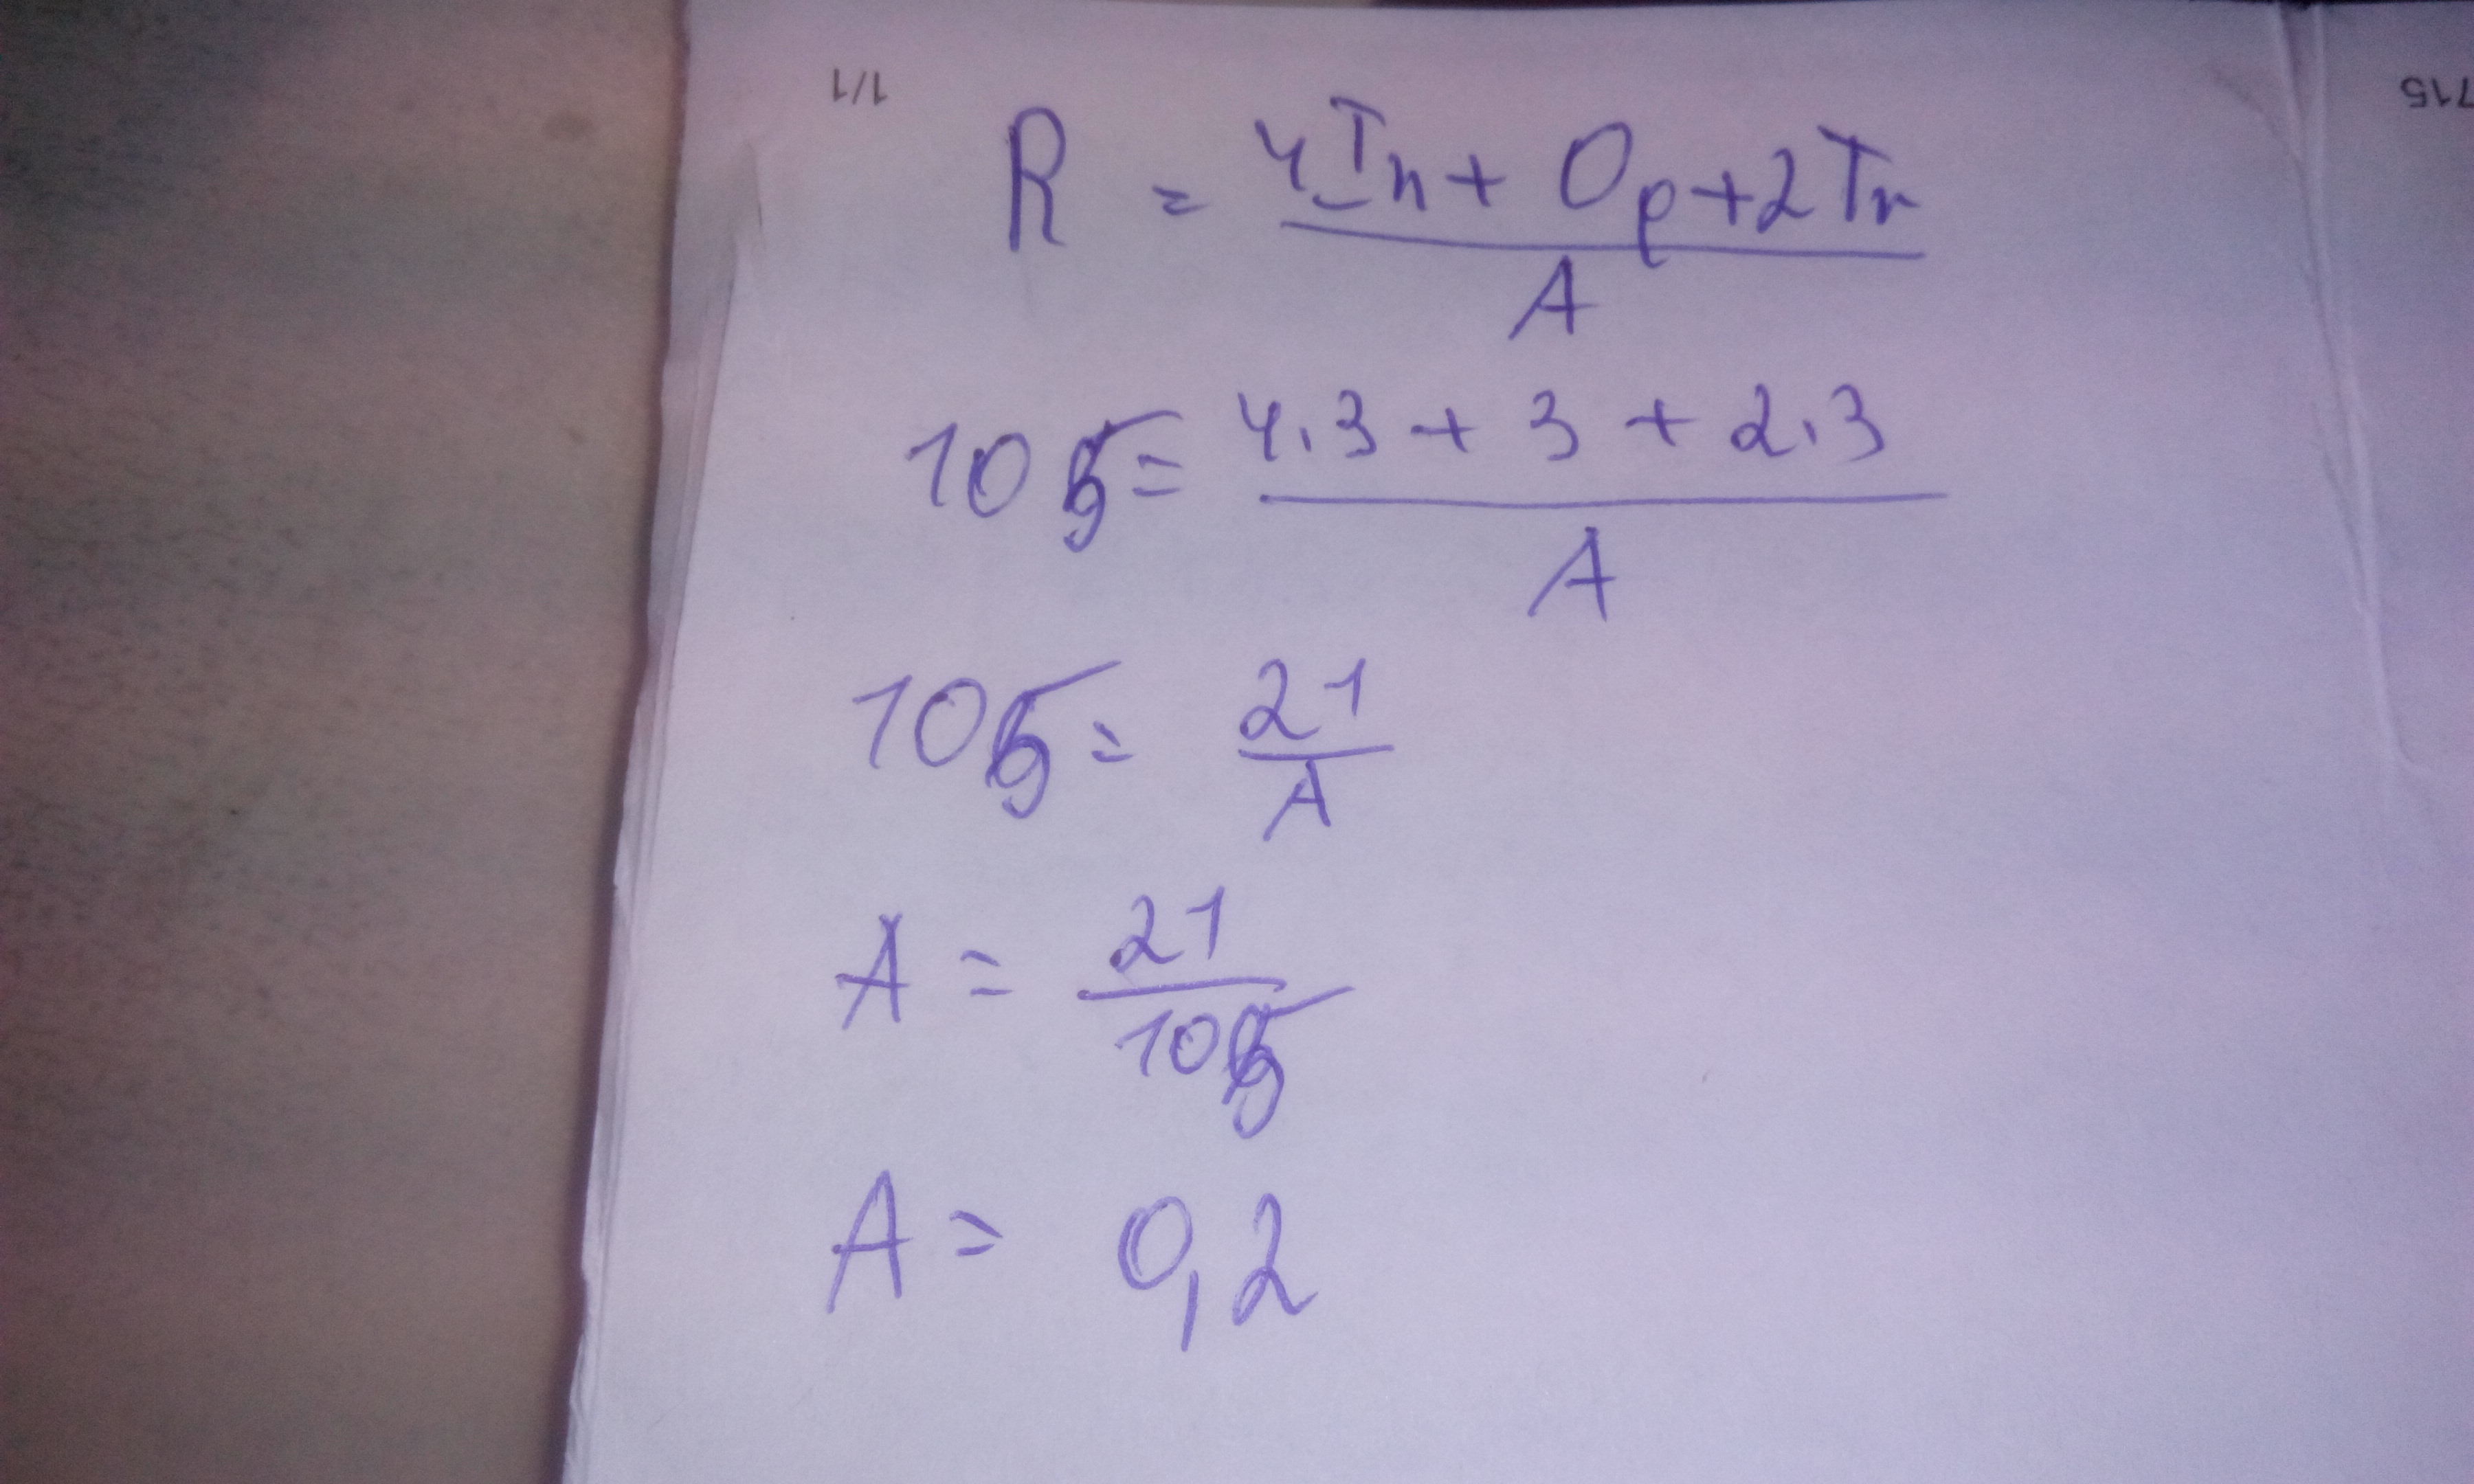 1/1
715
R = 4In + Op + 2Tr
A
105 = 4.3 + 3 + 2.3
A
105 = 21
A
A = 21
105
A = 0,2